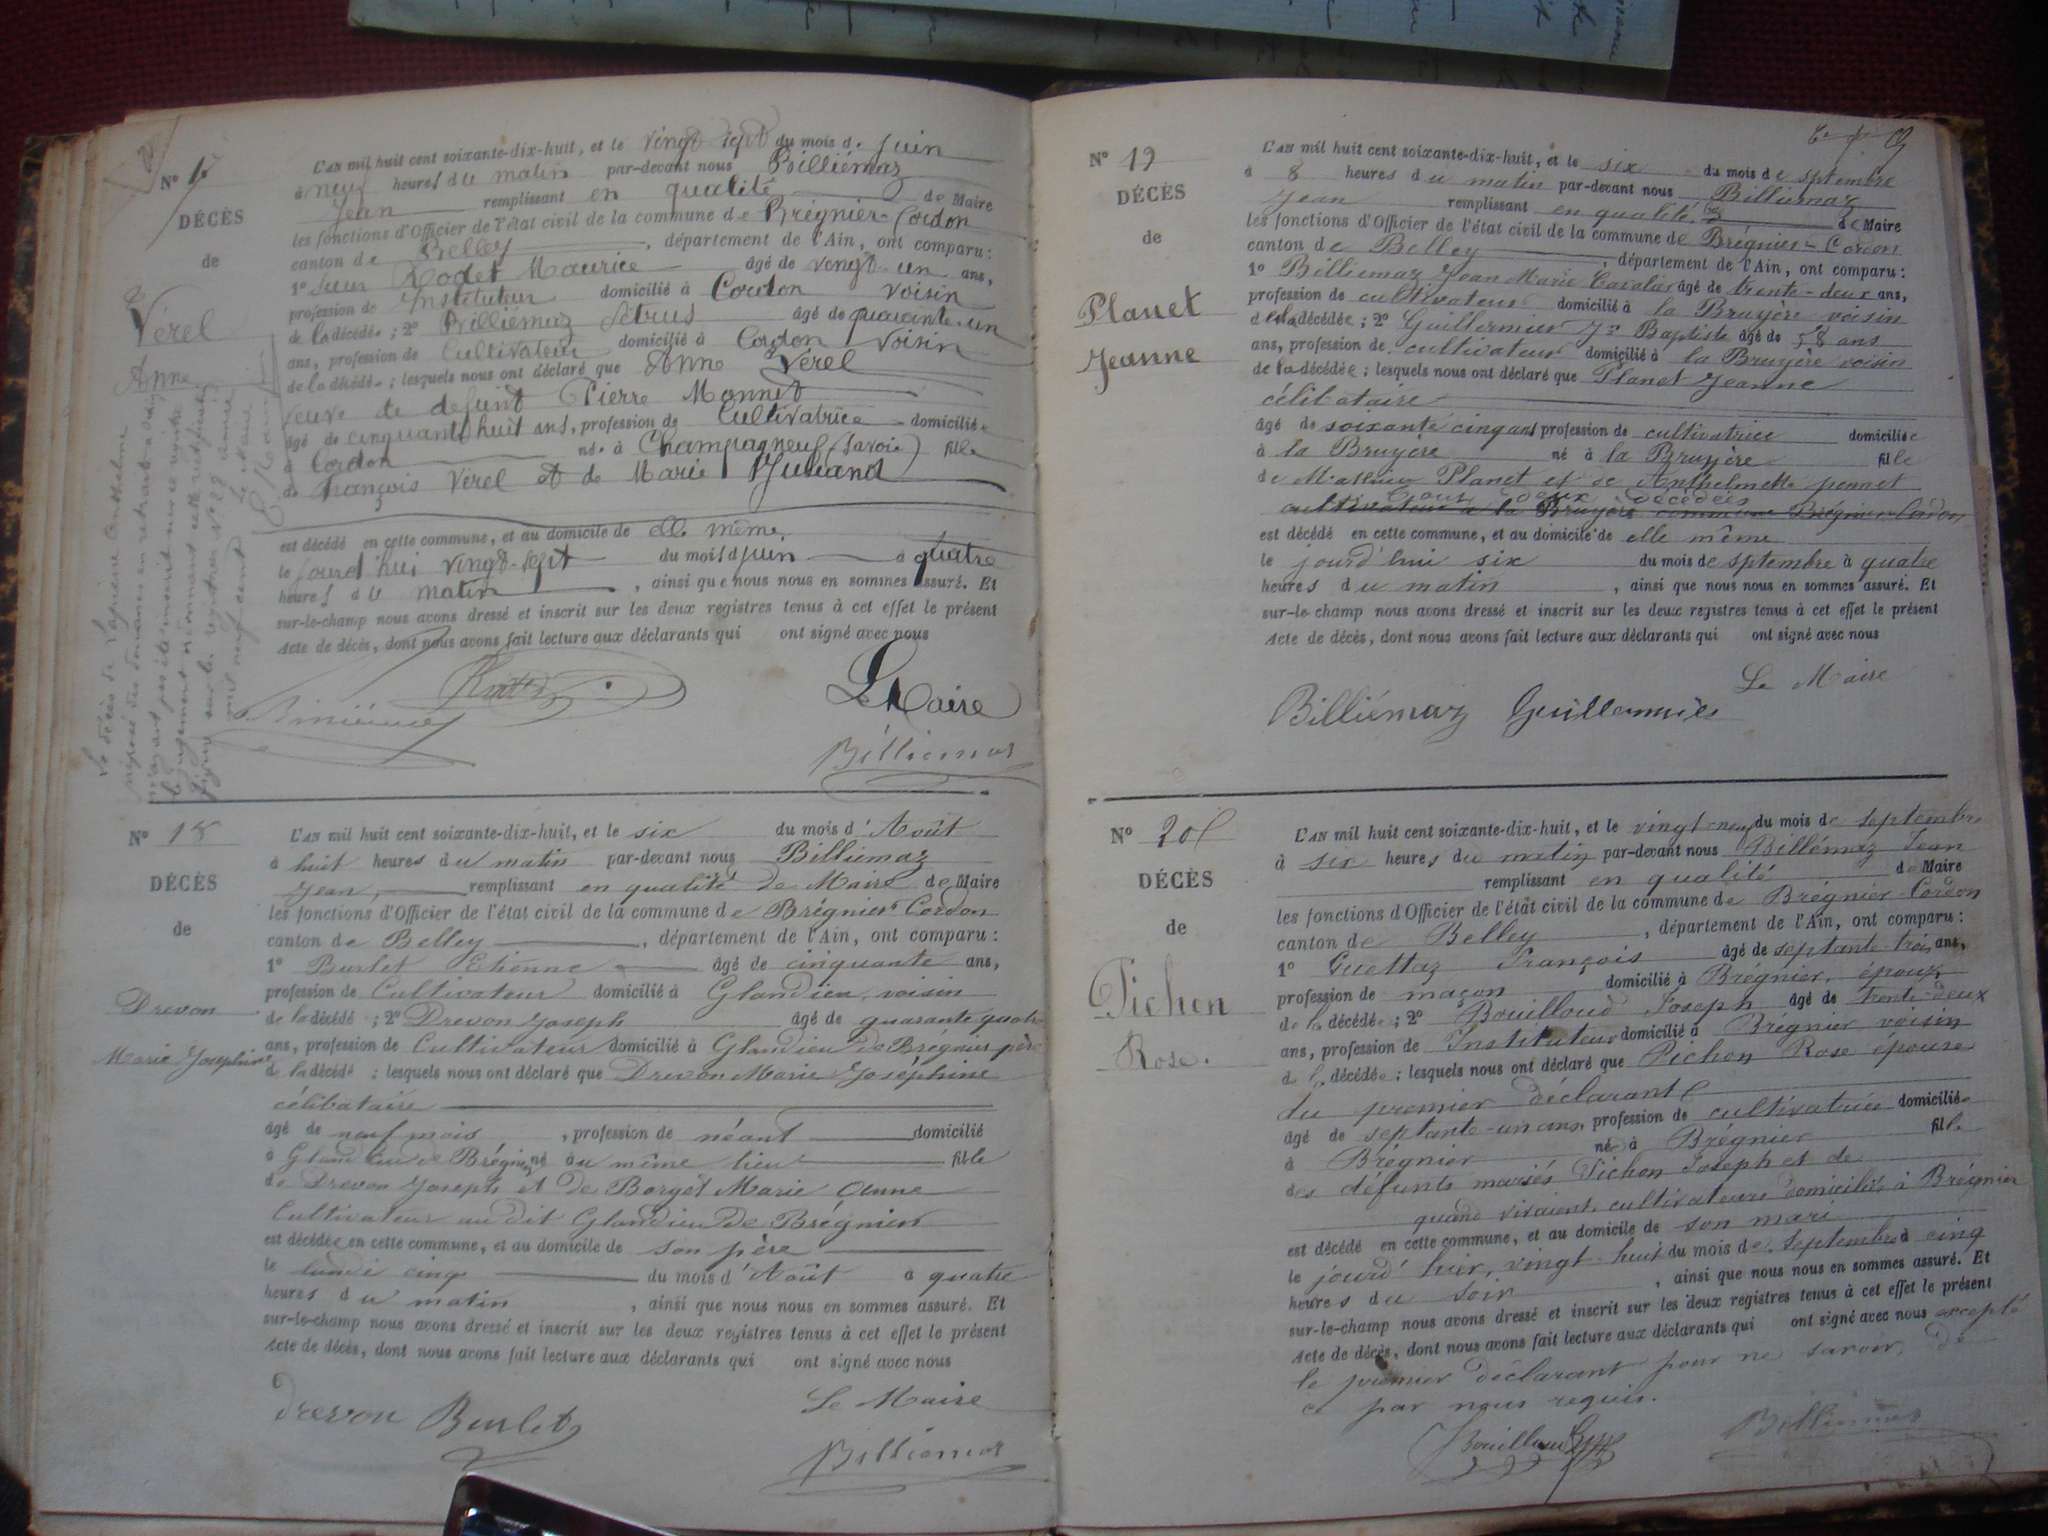 N° 17
DÉCÈS
de
Vérel
Anne
L'AN mil huit cent soixante-dix-huit, et le vingt sept du mois de Juin
à neuf heures du matin par-devant nous Billiémaz
Jean remplissant en qualité de Maire
les fonctions d'Officier de l'état civil de la commune de Brégnier-Cordon
canton de Belley, département de l'Ain, ont comparu :
1° Sieur Rodet Maurice âgé de vingt-un ans,
profession de Instituteur domicilié à Cordon voisin
de la décédée ; 2° Billiémaz Pétrus âgé de quarante-un
ans, profession de Cultivateur domicilié à Cordon Voisin
de la décédée ; lesquels nous ont déclaré que Anne Vérel
veuve de défunt Pierre Monnet
âgé de cinquante huit ans, profession de Cultivatrice domiciliée
à Cordon née à Champagneuf (Savoie) fille
de François Vérel et de Marie
est décédé en cette commune, et au domicile de elle même
le jourd'hui vingt-sept du mois d juin à quatre
heures du matin, ainsi que nous nous en sommes assuré. Et
sur-le-champ nous avons dressé et inscrit sur les deux registres tenus à cet effet le présent
Acte de décès, dont nous avons fait lecture aux déclarants qui ont signé avec nous
Le Maire
Billiemaz
Le décès de
N° 18
DÉCÈS
de
Drevon
Marie Josephine
L'AN mil huit cent soixante-dix-huit, et le six du mois d'Août
à huit heures du matin par-devant nous Billiemaz
Jean, remplissant en qualité de Maire de Maire
les fonctions d'Officier de l'état civil de la commune de Brégnier Cordon
canton de Belley, département de l'Ain, ont comparu :
1° Burlet Etienne âgé de cinquante ans,
profession de Cultivateur domicilié à Glandieu, voisin
de la décédé ; 2° Drevon Joseph âgé de quarante quatre
ans, profession de Cultivateur domicilié à Glandieu de Brégnier père
de la décédé ; lesquels nous ont déclaré que Drevon Marie Joséphine
célibataire
âgé de neuf mois, profession de néant domicilié
à Glandieu de Brégnier né au même lieu fille
de Drevon Joseph et de Borget Marie Anne
Cultivateur au dit Glandieu de Brégnier
est décédée en cette commune, et au domicile de son père
le lundi cinq du mois d'Août à quatre
heures du matin, ainsi que nous nous en sommes assuré. Et
sur-le-champ nous avons dressé et inscrit sur les deux registres tenus à cet effet le présent
Acte de décès, dont nous avons fait lecture aux déclarants qui ont signé avec nous
Le Maire
drevon Burlet
Billiemaz
N° 19
DÉCÈS
de
Planet
Jeanne
L'AN mil huit cent soixante-dix-huit, et le six du mois de septembre
à 8 heures du matin par-devant nous Billiemaz
Jean remplissant en qualité de Maire
les fonctions d'Officier de l'état civil de la commune de Brégnier-Cordon
canton de Belley, département de l'Ain, ont comparu :
1° Billiemaz Jean Marie Cavalier âgé de trente-deux ans,
profession de cultivateur domicilié à la Bruyère voisin
de la décédée ; 2° Guillermier Jn Baptiste âgé de 58 ans
ans, profession de cultivateur domicilié à la Bruyère voisin
de la décédée ; lesquels nous ont déclaré que Planet Jeanne
célibataire
âgé de soixante cinq ans profession de cultivatrice domiciliée
à la Bruyère né à la Bruyère fille
de Mathieu Planet et de Anthelmette
tous deux décédés
cultivateurs à la Bruyère commune Brégnier-Cordon
est décédé en cette commune, et au domicile de elle même
le jourd'hui six du mois de septembre à quatre
heures du matin, ainsi que nous nous en sommes assuré. Et
sur-le-champ nous avons dressé et inscrit sur les deux registres tenus à cet effet le présent
Acte de décès, dont nous avons fait lecture aux déclarants qui ont signé avec nous
Le Maire
Billiémaz Guillermier
N° 20
DÉCÈS
de
Pichon
Rose.
L'AN mil huit cent soixante-dix-huit, et le vingt-neuf du mois de septembre
à six heures du matin par-devant nous Billémaz Jean
remplissant en qualité de Maire
les fonctions d'Officier de l'état civil de la commune de Brégnier-Cordon
canton de Belley, département de l'Ain, ont comparu :
1° Guettaz François âgé de septante-trois ans,
profession de maçon domicilié à Brégnier, époux
de la décédée ; 2° Bouilloud Joseph âgé de trente-deux
ans, profession de Instituteur domicilié à Brégnier voisin
de la décédée ; lesquels nous ont déclaré que Pichon Rose épouse
du premier déclarant
âgé de septante-un ans, profession de cultivatrice domiciliée
à Brégnier née à Brégnier fille
des défunts mariés Pichon Joseph et de
quand vivaient cultivateurs domiciliés à Brégnier
est décédé en cette commune, et au domicile de son mari
le jourd'hier, vingt-huit du mois de septembre à cinq
heures du soir, ainsi que nous nous en sommes assuré. Et
sur-le-champ nous avons dressé et inscrit sur les deux registres tenus à cet effet le présent
Acte de décès, dont nous avons fait lecture aux déclarants qui ont signé avec nous excepté
le premier déclarant pour ne savoir, de
ce par nous requis.
Bouilloud
Billiemaz